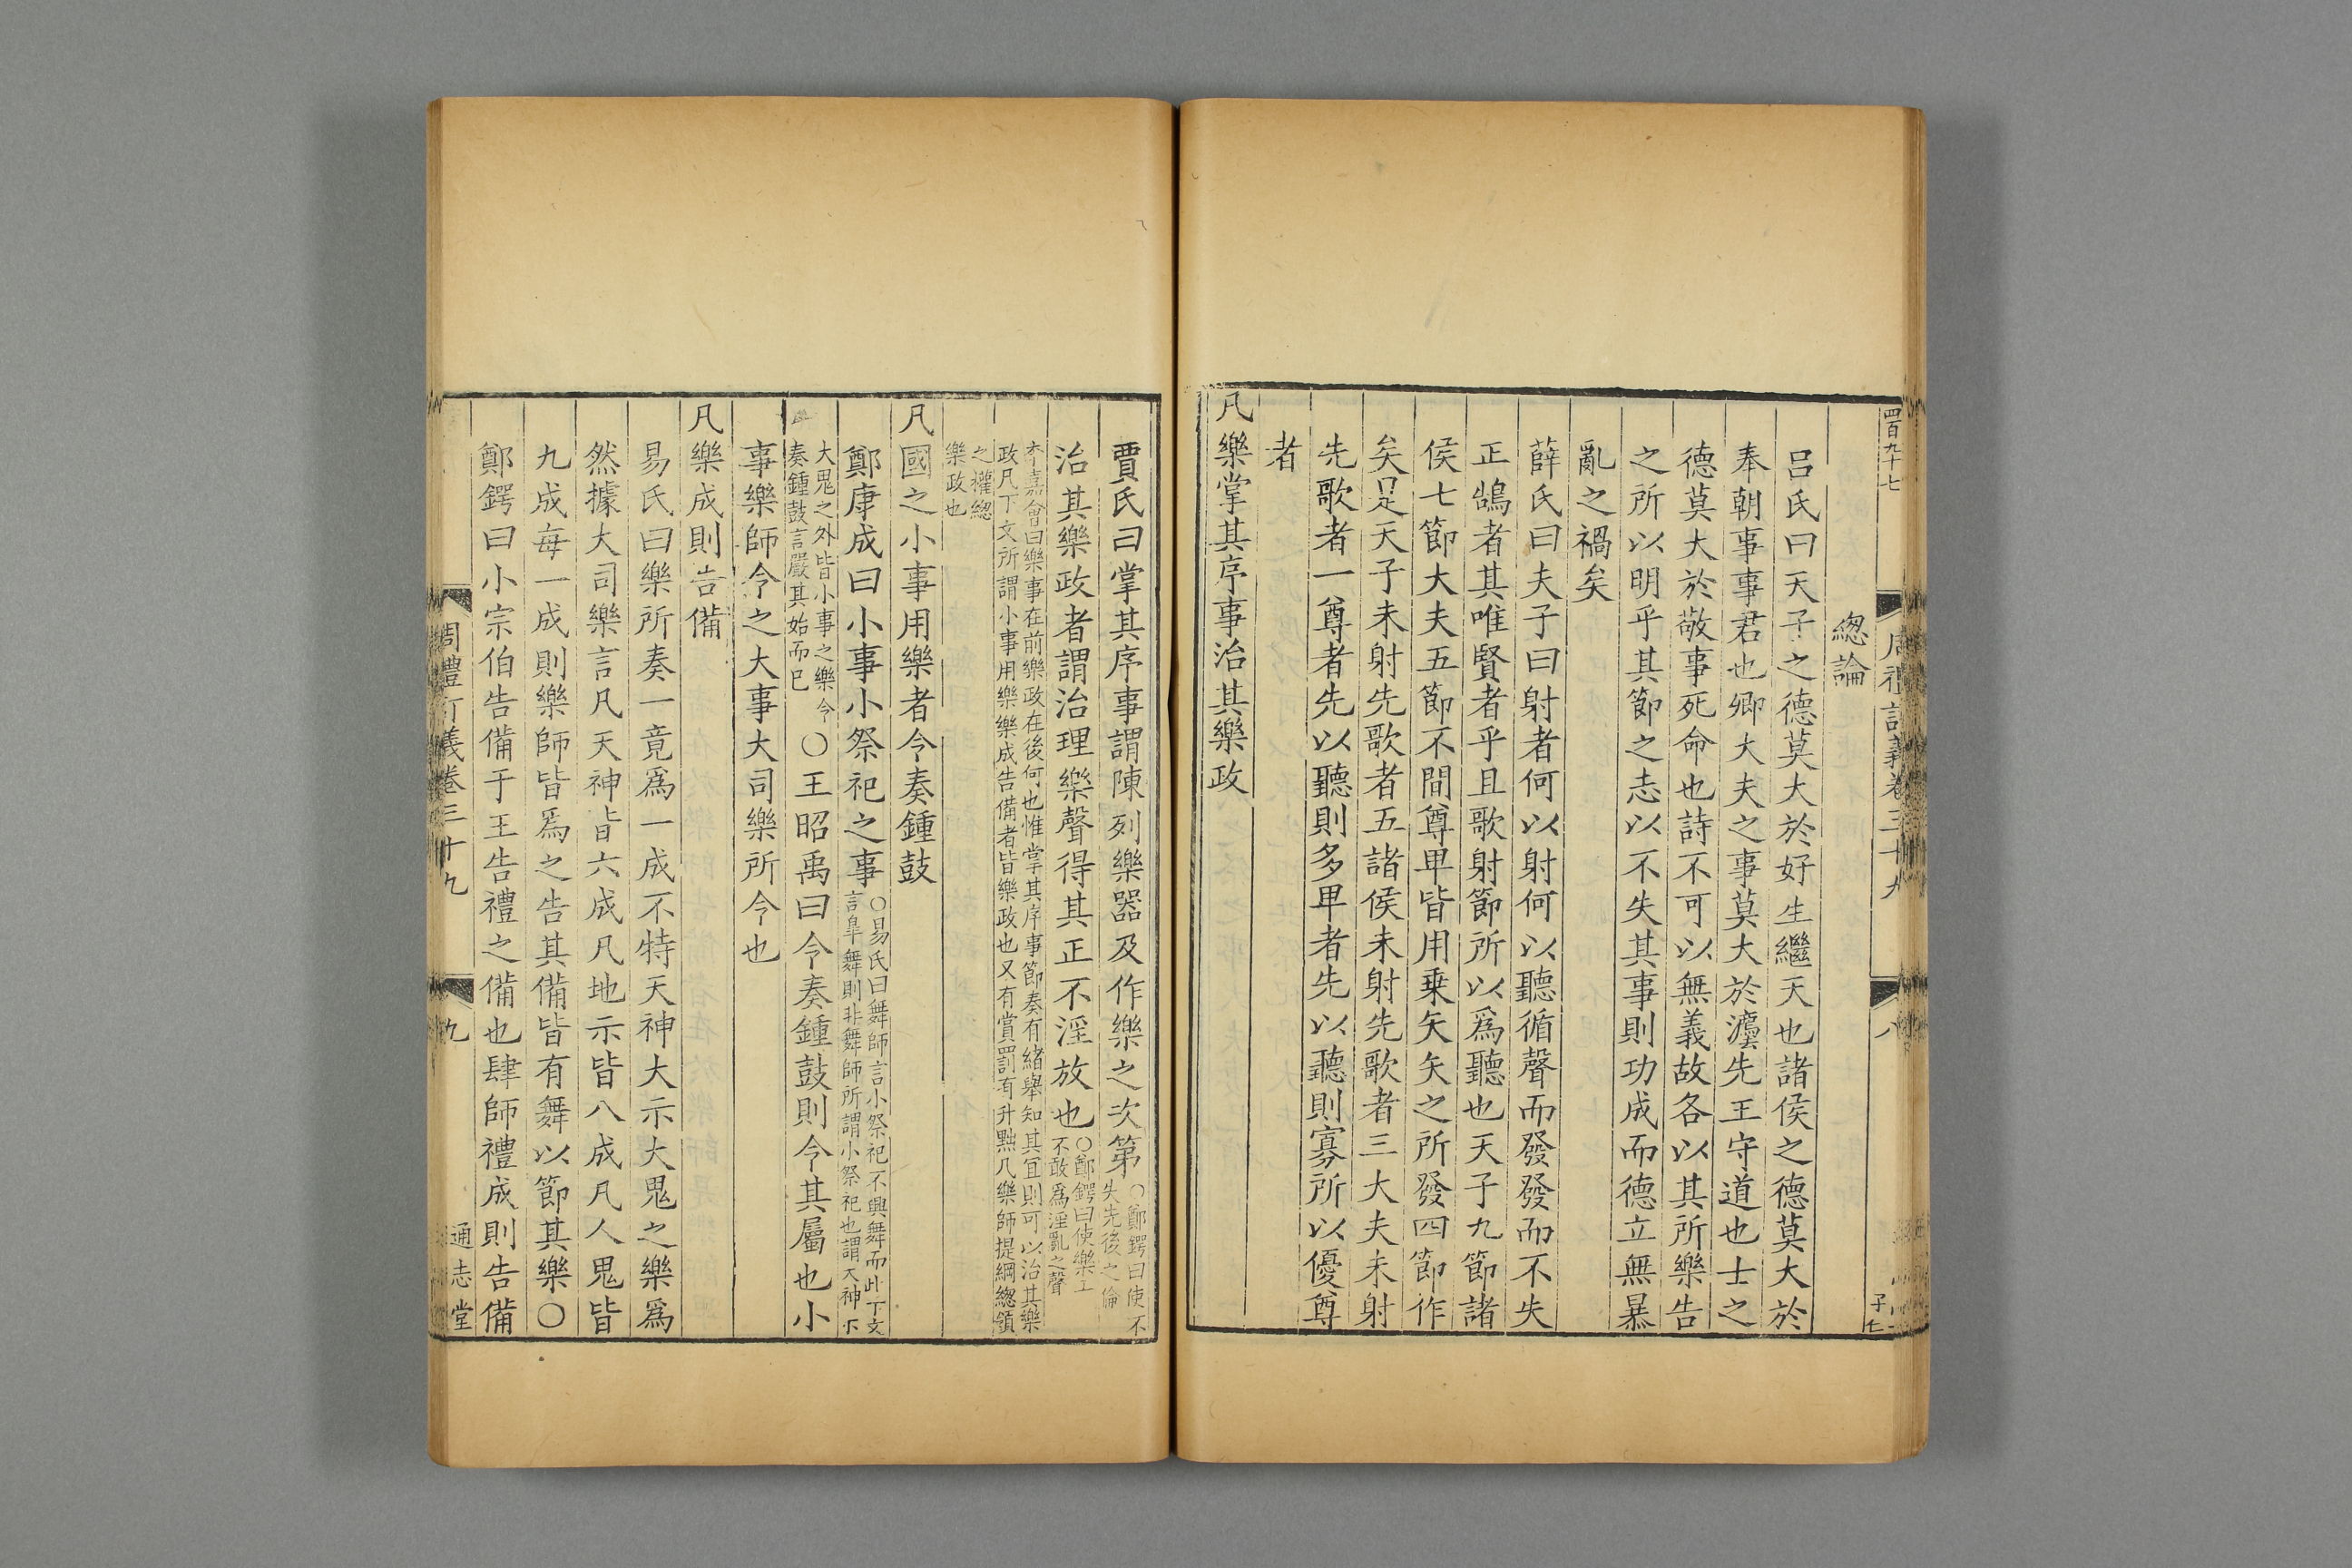 四百九十七
周禮訂義卷三十九
八
子七
總論
呂氏曰天子之德莫大於好生繼天也諸侯之德莫大於
奉朝事事君也卿大夫之事莫大於灋先王守道也士之
德莫大於敬事死命也詩不可以無義故各以其所樂告
之所以明乎其節之志以不失其事則功成而德立無暴
亂之禍矣
薛氏曰夫子曰射者何以射何以聽循聲而發發而不失
正鵠者其唯賢者乎且歌射節所以為聽也天子九節諸
侯七節大夫五節不間尊卑皆用乗矢矢之所發四節作
矣是天子未射先歌者五諸侯未射先歌者三大夫未射
先歌者一尊者先以聽則多卑者先以聽則寡所以優尊
者
凡樂掌其序事治其樂政
賈氏曰掌其序事謂陳列樂器及作樂之次第○鄭鍔曰使不
失先後之倫
治其樂政者謂治理樂聲得其正不淫放也○鄭鍔曰使樂工
不敢為淫亂之聲
李嘉會曰樂事在前樂政在後何也惟掌其序事節奏有緒舉知其宜則可以治其樂
政凡下文所謂小事用樂樂成告備者皆樂政也又有賞罰有升黜凡樂師提綱總領
之權總
樂政也
凡國之小事用樂者令奏鍾鼓
鄭康成曰小事小祭祀之事○易氏曰舞師言小祭祀不興舞而此下文
言臯舞則非舞師所謂小祭祀也謂天神下
大鬼之外皆小事之樂令
奏鍾鼓言嚴其始而已○王昭禹曰令奏鍾鼓則令其屬也小
事樂師令之大事大司樂所令也
凡樂成則告備
易氏曰樂所奏一竟為一成不特天神大示大鬼之樂為
然據大司樂言凡天神皆六成凡地示皆八成凡人鬼皆
九成每一成則樂師皆為之告其備皆有舞以節其樂○
鄭鍔曰小宗伯告備于王告禮之備也肆師禮成則告備
周禮訂義卷三十九
九
通志堂